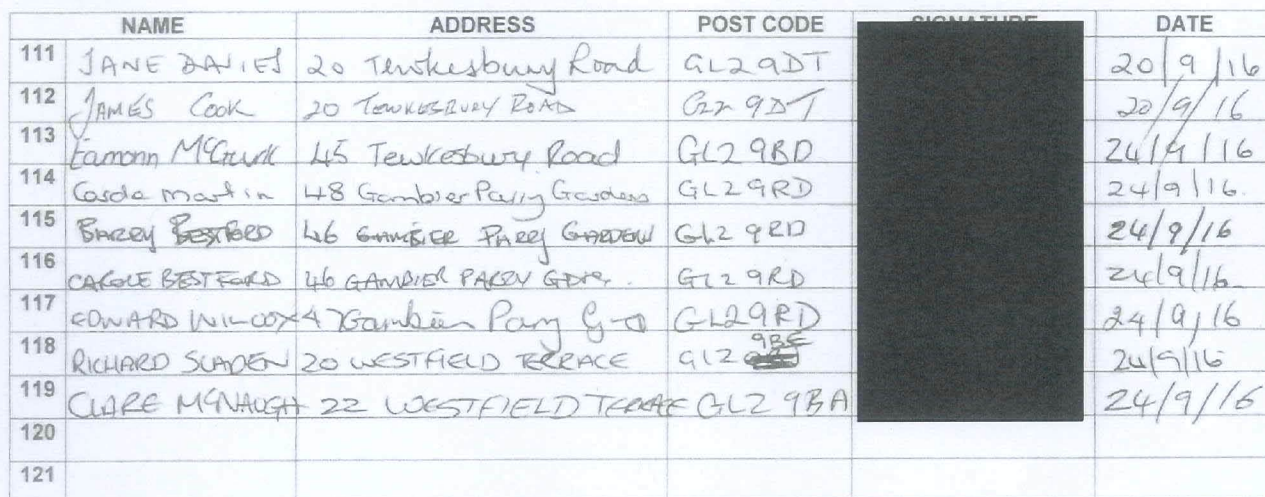 NAME ADDRESS POST CODE SIGNATURE DATE
111 JANE DAVIES 20 Tewkesbury Road GL2 9DT 20/9/16
112 JAMES COOK 20 TEWKESBURY ROAD GL2 9DT 20/9/16
113 Eamonn McGurk 45 Tewkesbury Road GL2 9BD 24/9/16
114 Martin 48 Gambier Parry Gardens GL2 9RD 24/9/16.
115 BARRY BESTFORD 46 GAMBIER PARRY GARDENS GL2 9RD 24/9/16
116 CAROLE BESTFORD 46 GAMBIER PARRY GDNS. GL2 9RD 24/9/16
117 EDWARD WILCOX 47 Gambier Parry GL2 9RD 24/9/16
118 RICHARD SLADEN 20 WESTFIELD TERRACE GL2 9BE 24/9/16
119 CLARE MCNAUGH 22 WESTFIELD TERRACE GL2 9BA 24/9/16
120
121